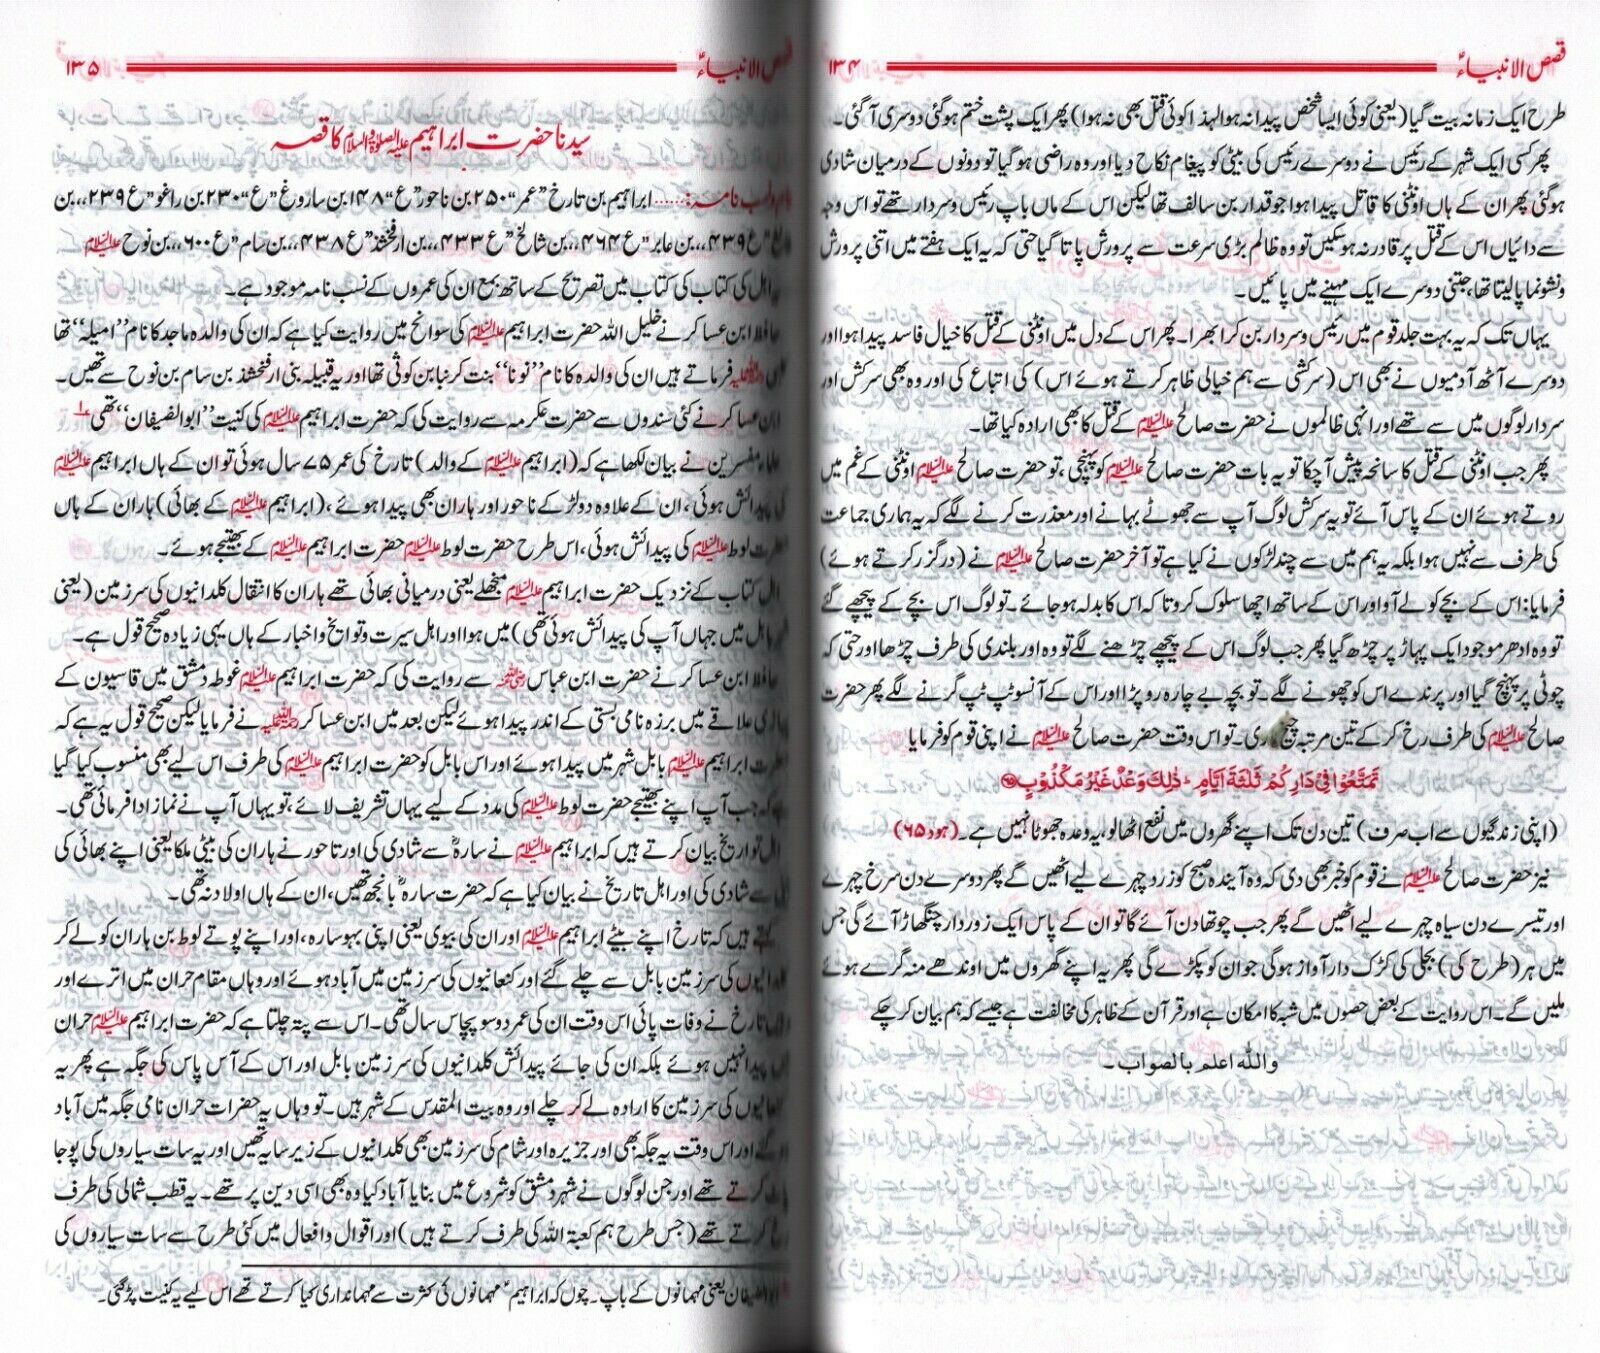 قصص الانبیاءؑ ۱۳۴
طرح ایک زمانہ بیت گیا (یعنی کوئی ایسا شخص پیدا نہ ہوا لہذا کوئی قتل بھی نہ ہوا) پھر ایک پشت ختم ہوگئی دوسری آگئی۔
پھر کسی ایک شہر کے رئیس نے دوسرے رئیس کی بیٹی کو پیغام نکاح دیا اور وہ راضی ہوگیا تو دونوں کے درمیان شادی
ہوگئی پھر ان کے ہاں اونٹنی کا قاتل پیدا ہوا جو قدار بن سالف تھا لیکن اس کے ماں باپ رئیس وسردار تھے تو اس وجہ
سے دائیاں اس کے قتل پر قادر نہ ہوسکیں تو وہ ظالم بڑی سرعت سے پرورش پاتا گیا حتی کہ یہ ایک ہفتے میں اتنی پرورش
ونشونما پالیتا تھا، جتنی دوسرے ایک مہینے میں پائیں۔
یہاں تک کہ یہ بہت جلد قوم میں رئیس وسردار بن کر ابھرا۔ پھر اس کے دل میں اونٹنی کے قتل کا خیال فاسد پیدا ہوا اور
دوسرے آٹھ آدمیوں نے بھی اس (سرکشی سے ہم خیالی ظاہر کرتے ہوئے اس) کی اتباع کی اور وہ بھی سرکش اور
سردار لوگوں میں سے تھے اور انہی ظالموں نے حضرت صالح علیہ السلام کے قتل کا بھی ارادہ کیا تھا۔
پھر جب اونٹنی کے قتل کا سانحہ پیش آچکا تو یہ بات حضرت صالح علیہ السلام کو پہنچی، تو حضرت صالح علیہ السلام اونٹنی کے غم میں
روتے ہوئے ان کے پاس آئے تو یہ سرکش لوگ آپ سے جھوٹے بہانے اور معذرت کرنے لگے کہ یہ ہماری جماعت
کی طرف سے نہیں ہوا بلکہ یہ ہم میں سے چند لڑکوں نے کیا ہے تو آخر حضرت صالح علیہ السلام نے (درگزر کرتے ہوئے)
فرمایا: اس کے بچے کو لے آو اور اس کے ساتھ اچھا سلوک کرو تا کہ اس کا بدلہ ہوجائے۔ تو لوگ اس بچے کے پیچھے گئے
تو وہ ادھر موجود ایک پہاڑ پر چڑھ گیا پھر جب لوگ اس کے پیچھے چڑھنے لگے تو وہ اور بلندی کی طرف چڑھا اور حتی کہ
چوٹی پر پہنچ گیا اور پرندے اس کو چھونے لگے۔ تو بچہ بے چارہ رو پڑا اور اس کے آنسو ٹپ ٹپ کرنے لگے پھر حضرت
صالح علیہ السلام کی طرف رخ کر کے تین مرتبہ چیخ ری۔ تو اس وقت حضرت صالح علیہ السلام نے اپنی قوم کو فرمایا
تَمَتَّعُوْا فِیْ دَارِکُمْ ثَلٰثَةَ اَیَّامٍ ۭ ذٰلِکَ وَعْدٌ غَیْرُ مَکْذُوْبٍ
(اپنی زندگیوں سے اب صرف) تین دن تک اپنے گھروں میں نفع اٹھالو، یہ وعدہ جھوٹا نہیں ہے۔ (ہود ۶۵)
نیز حضرت صالح علیہ السلام نے قوم کو خبر بھی دی کہ وہ آیندہ صبح کو زرد چہرے لیے اٹھیں گے پھر دوسرے دن سرخ چہرے
اور تیسرے دن سیاہ چہرے لیے اٹھیں گے پھر جب چوتھا دن آئے گا تو ان کے پاس ایک زوردار چنگھاڑ آئے گی جس
میں ہر (طرح کی) بجلی کی کڑک دار آواز ہوگی جو ان کو پکڑے گی پھر یہ اپنے گھروں میں اوندھے منہ گرے ہوئے
ملیں گے۔ اس روایت کے بعض حصوں میں شبہ کا امکان ہے اور قرآن کے ظاہر کی مخالفت ہے جیسے کہ ہم بیان کر چکے
واللہ اعلم بالصواب۔
قصص الانبیاءؑ ۱۳۵
سیدنا حضرت ابراہیم علیہ الصلوٰۃ والسلام کا قصہ
نسب نامہ:...... ابراہیم بن تارخ "عمر" ۲۵۰ بن ناحور "ع" ۱۴۸ ابن ساروغ "ع" ۲۳۰ بن راغو "ع ۲۳۹،،، بن
"ع ۴۳۹،،، بن عابر "ع ۴۶۴،،، بن شالخ "ع ۴۳۳،،، بن ارفخشذ "ع ۴۳۸،،، بن سام "ع ۶۰۰،،، بن نوح علیہ السلام
اہل کی کتاب کی کتاب میں تصریح کے ساتھ بمع ان کی عمروں کے نسب نامہ موجود ہے۔
حافظ ابن عساکر نے خلیل اللہ حضرت ابراہیم علیہ السلام کی سوانح میں روایت کیا ہے کہ ان کی والدہ ماجد کا نام "امیلہ" تھا
فرماتے ہیں ان کی والدہ کا نام "نونا" بنت کرنبا بن کوثی تھا اور یہ قبیلہ بنی ارفخشذ بن سام بن نوح سے تھیں۔
ابن عساکر نے کئی سندوں سے حضرت عکرمہ سے روایت کی کہ حضرت ابراہیم علیہ السلام کی کنیت "ابوالضیفان" تھی ۱
علماء مفسرین نے بیان لکھا ہے کہ (ابراہیم علیہ السلام کے والد) تارخ کی عمر ۷۵ سال ہوئی تو ان کے ہاں ابراہیم علیہ السلام
کی پیدائش ہوئی، ان کے علاوہ دو لڑکے ناحور اور ہاران بھی پیدا ہوئے، (ابراہیم علیہ السلام کے بھائی) ہاران کے ہاں
حضرت لوط علیہ السلام کی پیدائش ہوئی، اس طرح حضرت لوط علیہ السلام حضرت ابراہیم علیہ السلام کے بھتیجے ہوئے۔
اہل کتاب کے نزدیک حضرت ابراہیم علیہ السلام منجھلے یعنی درمیانی بھائی تھے ہاران کا انتقال کلدانیوں کی سرزمین (یعنی
بابل میں جہاں آپ کی پیدائش ہوئی تھی) میں ہوا اور اہل سیرت وتوایخ واخبار کے ہاں یہی زیادہ صحیح قول ہے۔
حافظ ابن عساکر نے حضرت ابن عباس رضی اللہ عنہ سے روایت کی کہ حضرت ابراہیم علیہ السلام غوطہ دمشق میں قاسیون کے
پہاڑی علاقے میں برزہ نامی بستی کے اندر پیدا ہوئے لیکن بعد میں ابن عساکر رحمۃ اللہ علیہ نے فرمایا لیکن صحیح قول یہ ہے کہ
حضرت ابراہیم علیہ السلام بابل شہر میں پیدا ہوئے اور اس بابل کو حضرت ابراہیم علیہ السلام کی طرف اس لیے بھی منسوب کیا گیا
ہے کہ جب آپ اپنے بھتیجے حضرت لوط علیہ السلام کی مدد کے لیے یہاں تشریف لائے، تو یہاں آپ نے نماز ادا فرمائی تھی۔
اہل تواریخ بیان کرتے ہیں کہ ابراہیم علیہ السلام نے سارہؓ سے شادی کی اور تاحور نے ہاران کی بیٹی ملکا یعنی اپنے بھائی کی
سے شادی کی اور اہل تاریخ نے بیان کیا ہے کہ حضرت سارہؓ بانجھ تھیں، ان کے ہاں اولاد نہ تھی۔
کہتے ہیں کہ تارخ اپنے بیٹے ابراہیم علیہ السلام اور ان کی بیوی یعنی اپنی بہو سارہ، اور اپنے پوتے لوط بن ہاران کو لے کر
کی سرزمین بابل سے چلے گئے اور کنعانیوں کی سرزمین میں آباد ہوئے اور وہاں مقام حران میں اترے اور
تارخ نے وفات پائی اس وقت ان کی عمر دو سو پچاس سال تھی۔ اس سے پتہ چلتا ہے کہ حضرت ابراہیم علیہ السلام حران
پیدا نہیں ہوئے بلکہ ان کی جائے پیدائش کلدانیوں کی سرزمین بابل اور اس کے آس پاس کی جگہ ہے پھر یہ
کی سرزمین کا ارادہ لے کر چلے اور وہ بیت المقدس کے شہر ہیں۔ تو وہاں یہ حضرات حران نامی جگہ میں آباد
گئے اور اس وقت یہ جگہ بھی اور جزیرہ اور شام کی سرزمین بھی کلدانیوں کے زیر سایہ تھیں اور یہ سات سیاروں کی پوجا
کرتے تھے اور جن لوگوں نے شہر دمشق کو شروع میں بنایا آباد کیا وہ بھی اسی دین پر تھے۔ یہ قطب شمالی کی طرف
کرتے تھے (جس طرح ہم کعبۃ اللہ کی طرف کرتے ہیں) اور اقوال وافعال میں کئی طرح سے سات سیاروں کی
ابوالضیفان یعنی مہمانوں کے باپ۔ چوں کہ ابراہیمؑ مہمانوں کی کثرت سے مہمانداری کیا کرتے تھے اس لیے یہ کنیت پڑگئی۔